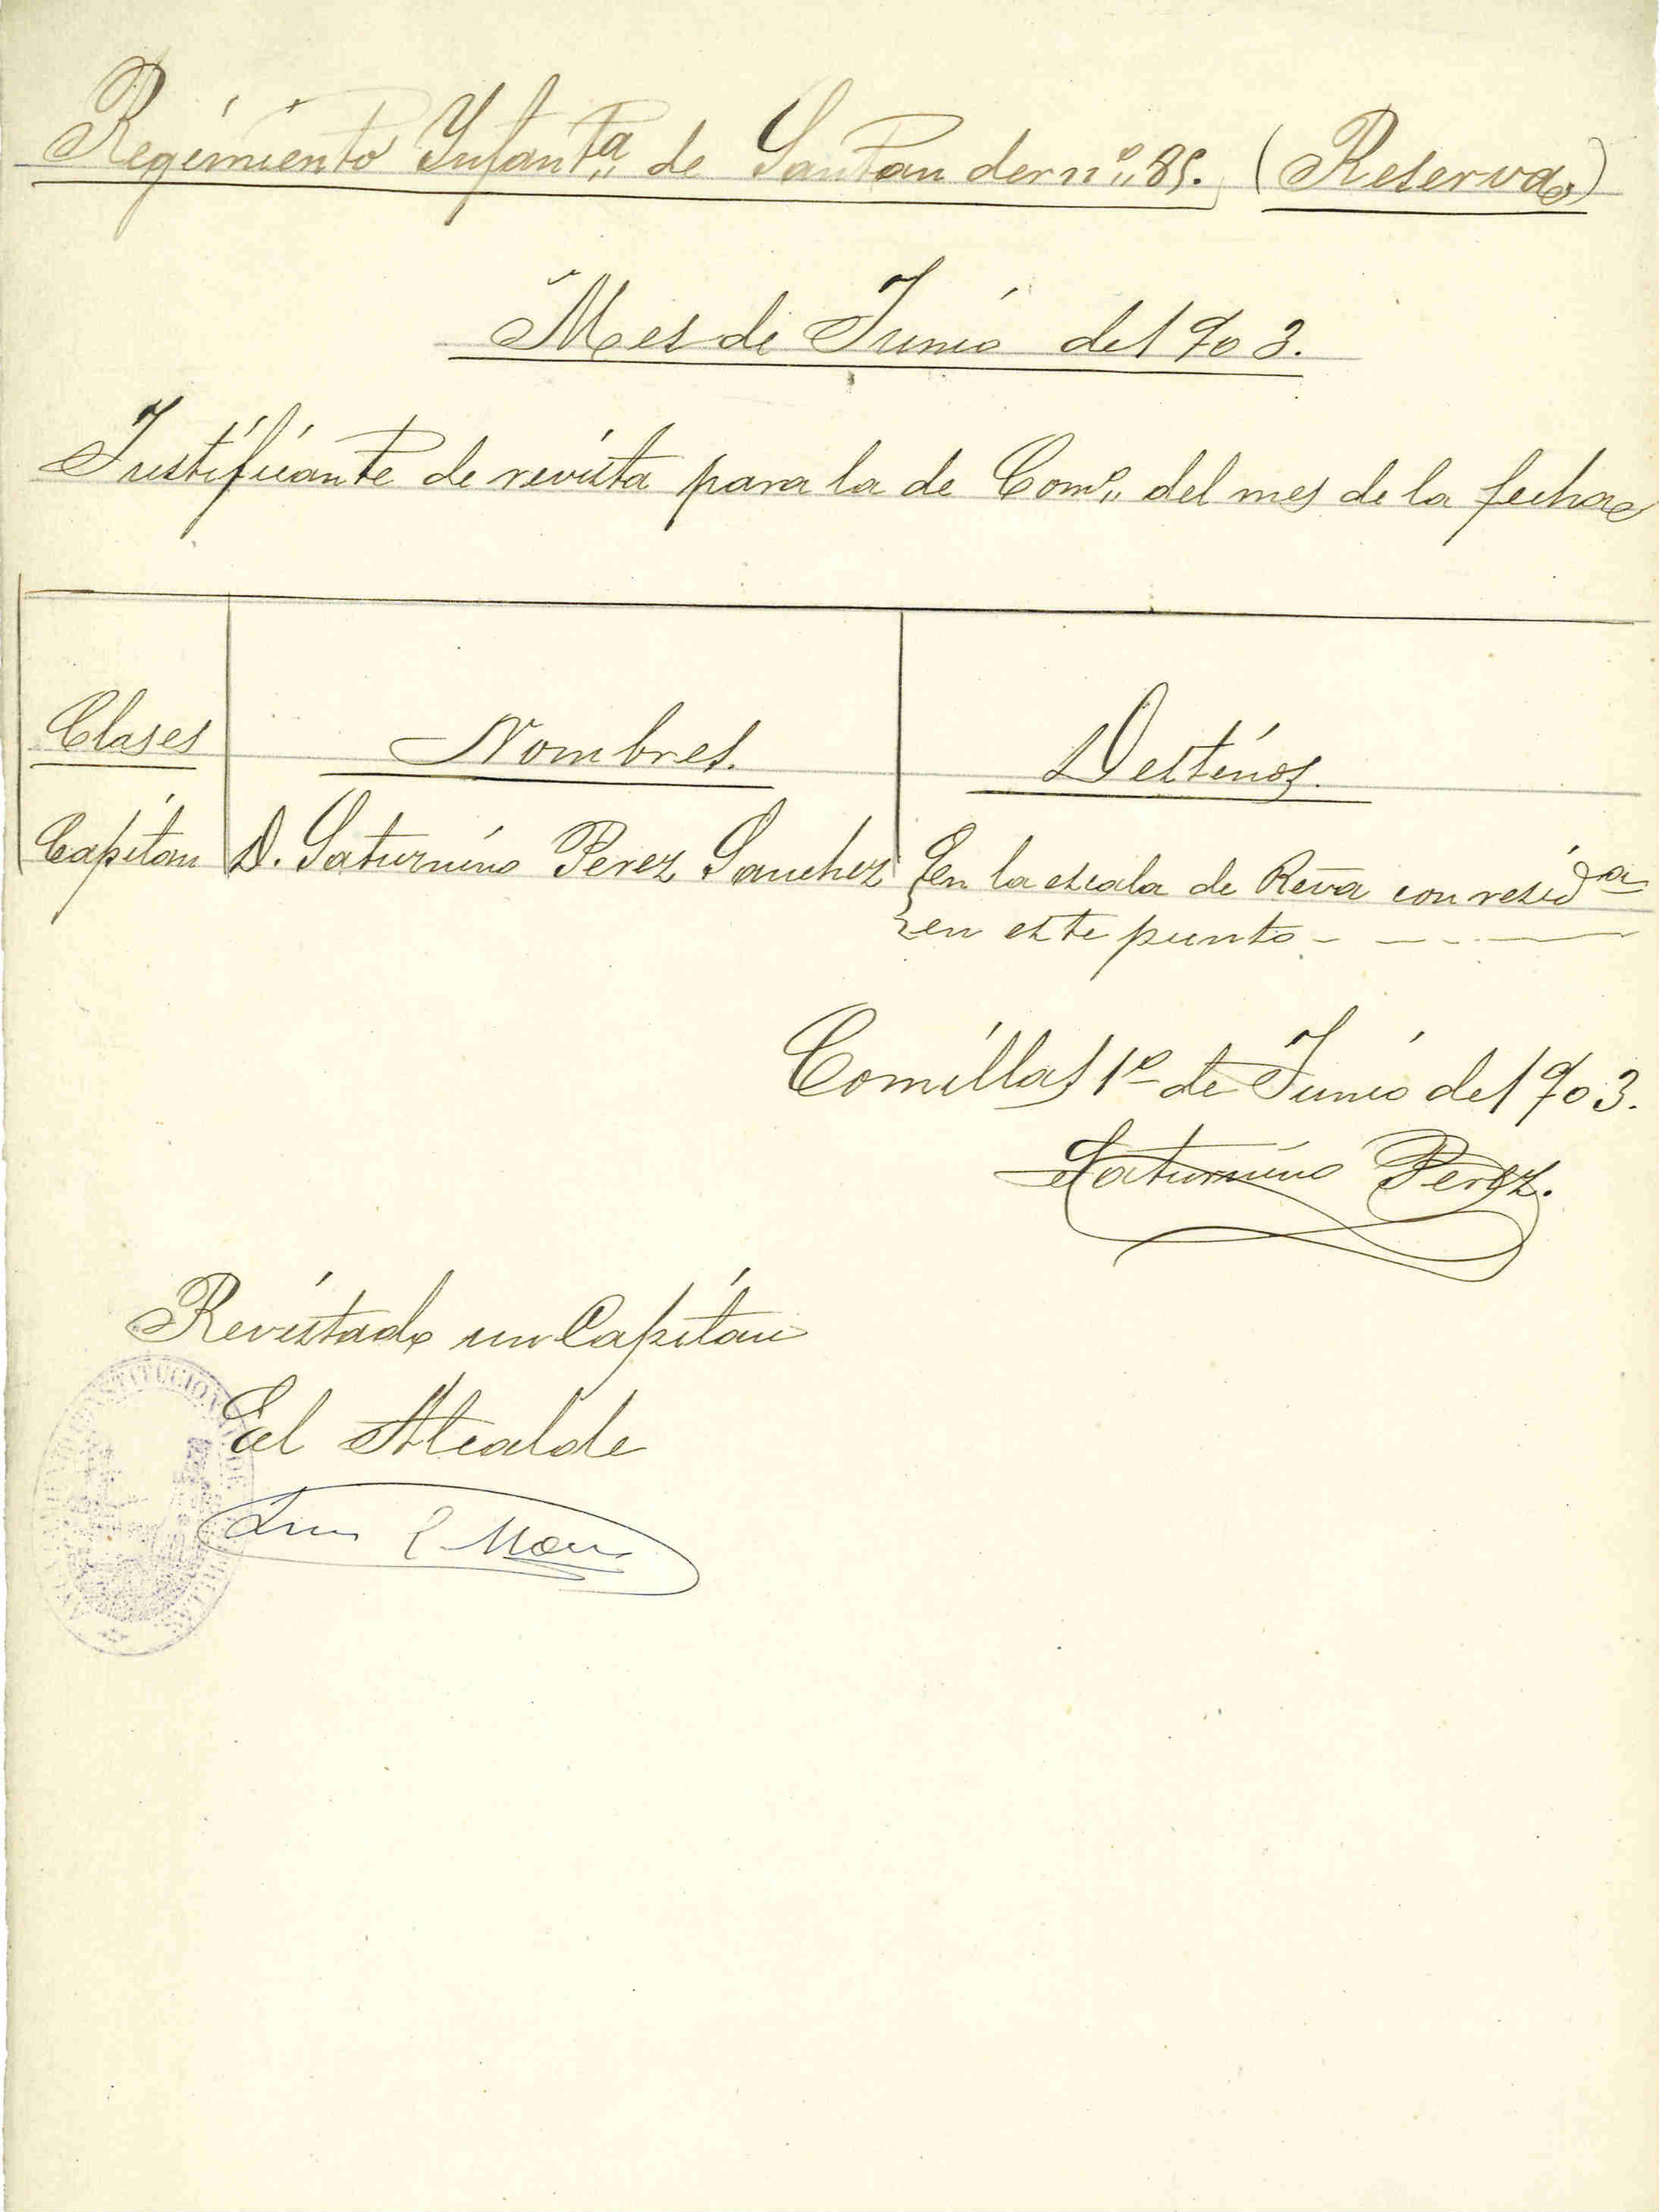 Regimiento Ynfantª de Santander nº 85. (Reserva)
Mes de Junio de 1903.
Justificante de revista para la de Comº del mes de la fecha
Clases Nombres. Destinos.
Capitan D. Saturnino Perez Sanchez En la escala de Rēva con residª
en este punto
Comillas 1º de Junio de 1903.
Saturnino Perez.
Revistado un Capitan
El Alcalde